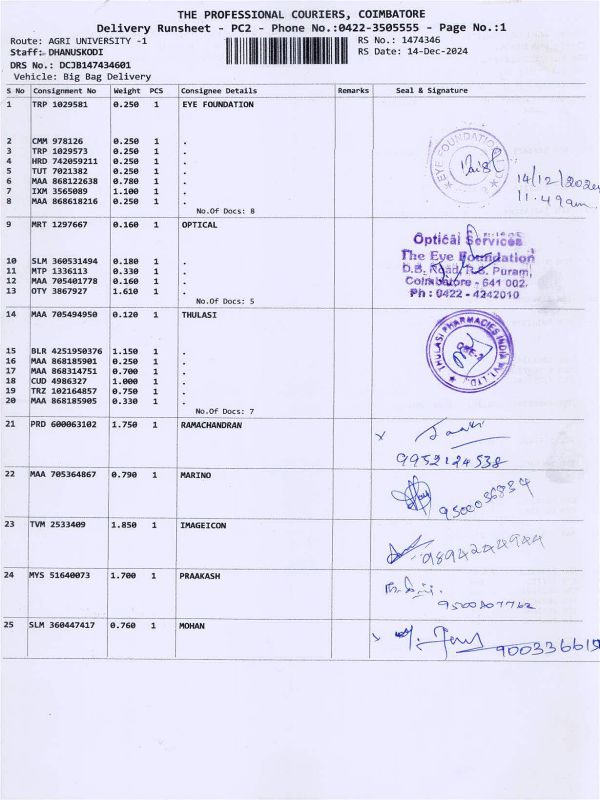 THE PROFESSIONAL COURIERS, COIMBATORE
Delivery Runsheet - PC2 - Phone No.:0422-3505555 - Page No.:1
Route: AGRI UNIVERSITY -1 RS No.: 1474346
Staff: DHANUSKODI RS Date: 14-Dec-2024
DRS No.: DCJB147434601
Vehicle: Big Bag Delivery
S No Consignment No Weight PCS Consignee Details Remarks Seal & Signature
1 TRP 1029581 0.250 1 EYE FOUNDATION
2 CMM 978126 0.250 1 .
3 TRP 1029573 0.250 1 .
4 HRD 742059211 0.250 1 .
5 TUT 7021382 0.250 1 .
6 MAA 868122638 0.780 1 .
7 IXM 3565089 1.100 1 .
8 MAA 868618216 0.250 1 .
EYE FOUNDATION
14/12/2024
11.49am
No.Of Docs: 8
9 MRT 1297667 0.160 1 OPTICAL
10 SLM 360531494 0.180 1 .
11 MTP 1336113 0.330 1 .
12 MAA 705401778 0.160 1 .
13 OTY 3867927 1.610 1 .
Optical Services
The Eye Foundation
D.B. Road, R.S. Puram,
Coimbatore - 641 002.
Ph : 0422 - 4242010
No.Of Docs: 5
14 MAA 705494950 0.120 1 THULASI
15 BLR 4251950376 1.150 1 .
16 MAA 868185901 0.250 1 .
17 MAA 868314751 0.700 1 .
18 CUD 4986327 1.000 1 .
19 TRZ 102164857 0.750 1 .
20 MAA 868185905 0.330 1 .
THULASI PHARMACIES INDIA PVT. LTD.
No.Of Docs: 7
21 PRD 600063102 1.750 1 RAMACHANDRAN
9952124538
22 MAA 705364867 0.790 1 MARINO
23 TVM 2533409 1.850 1 IMAGEICON
9894244944
24 MYS 51640073 1.700 1 PRAAKASH
25 SLM 360447417 0.760 1 MOHAN